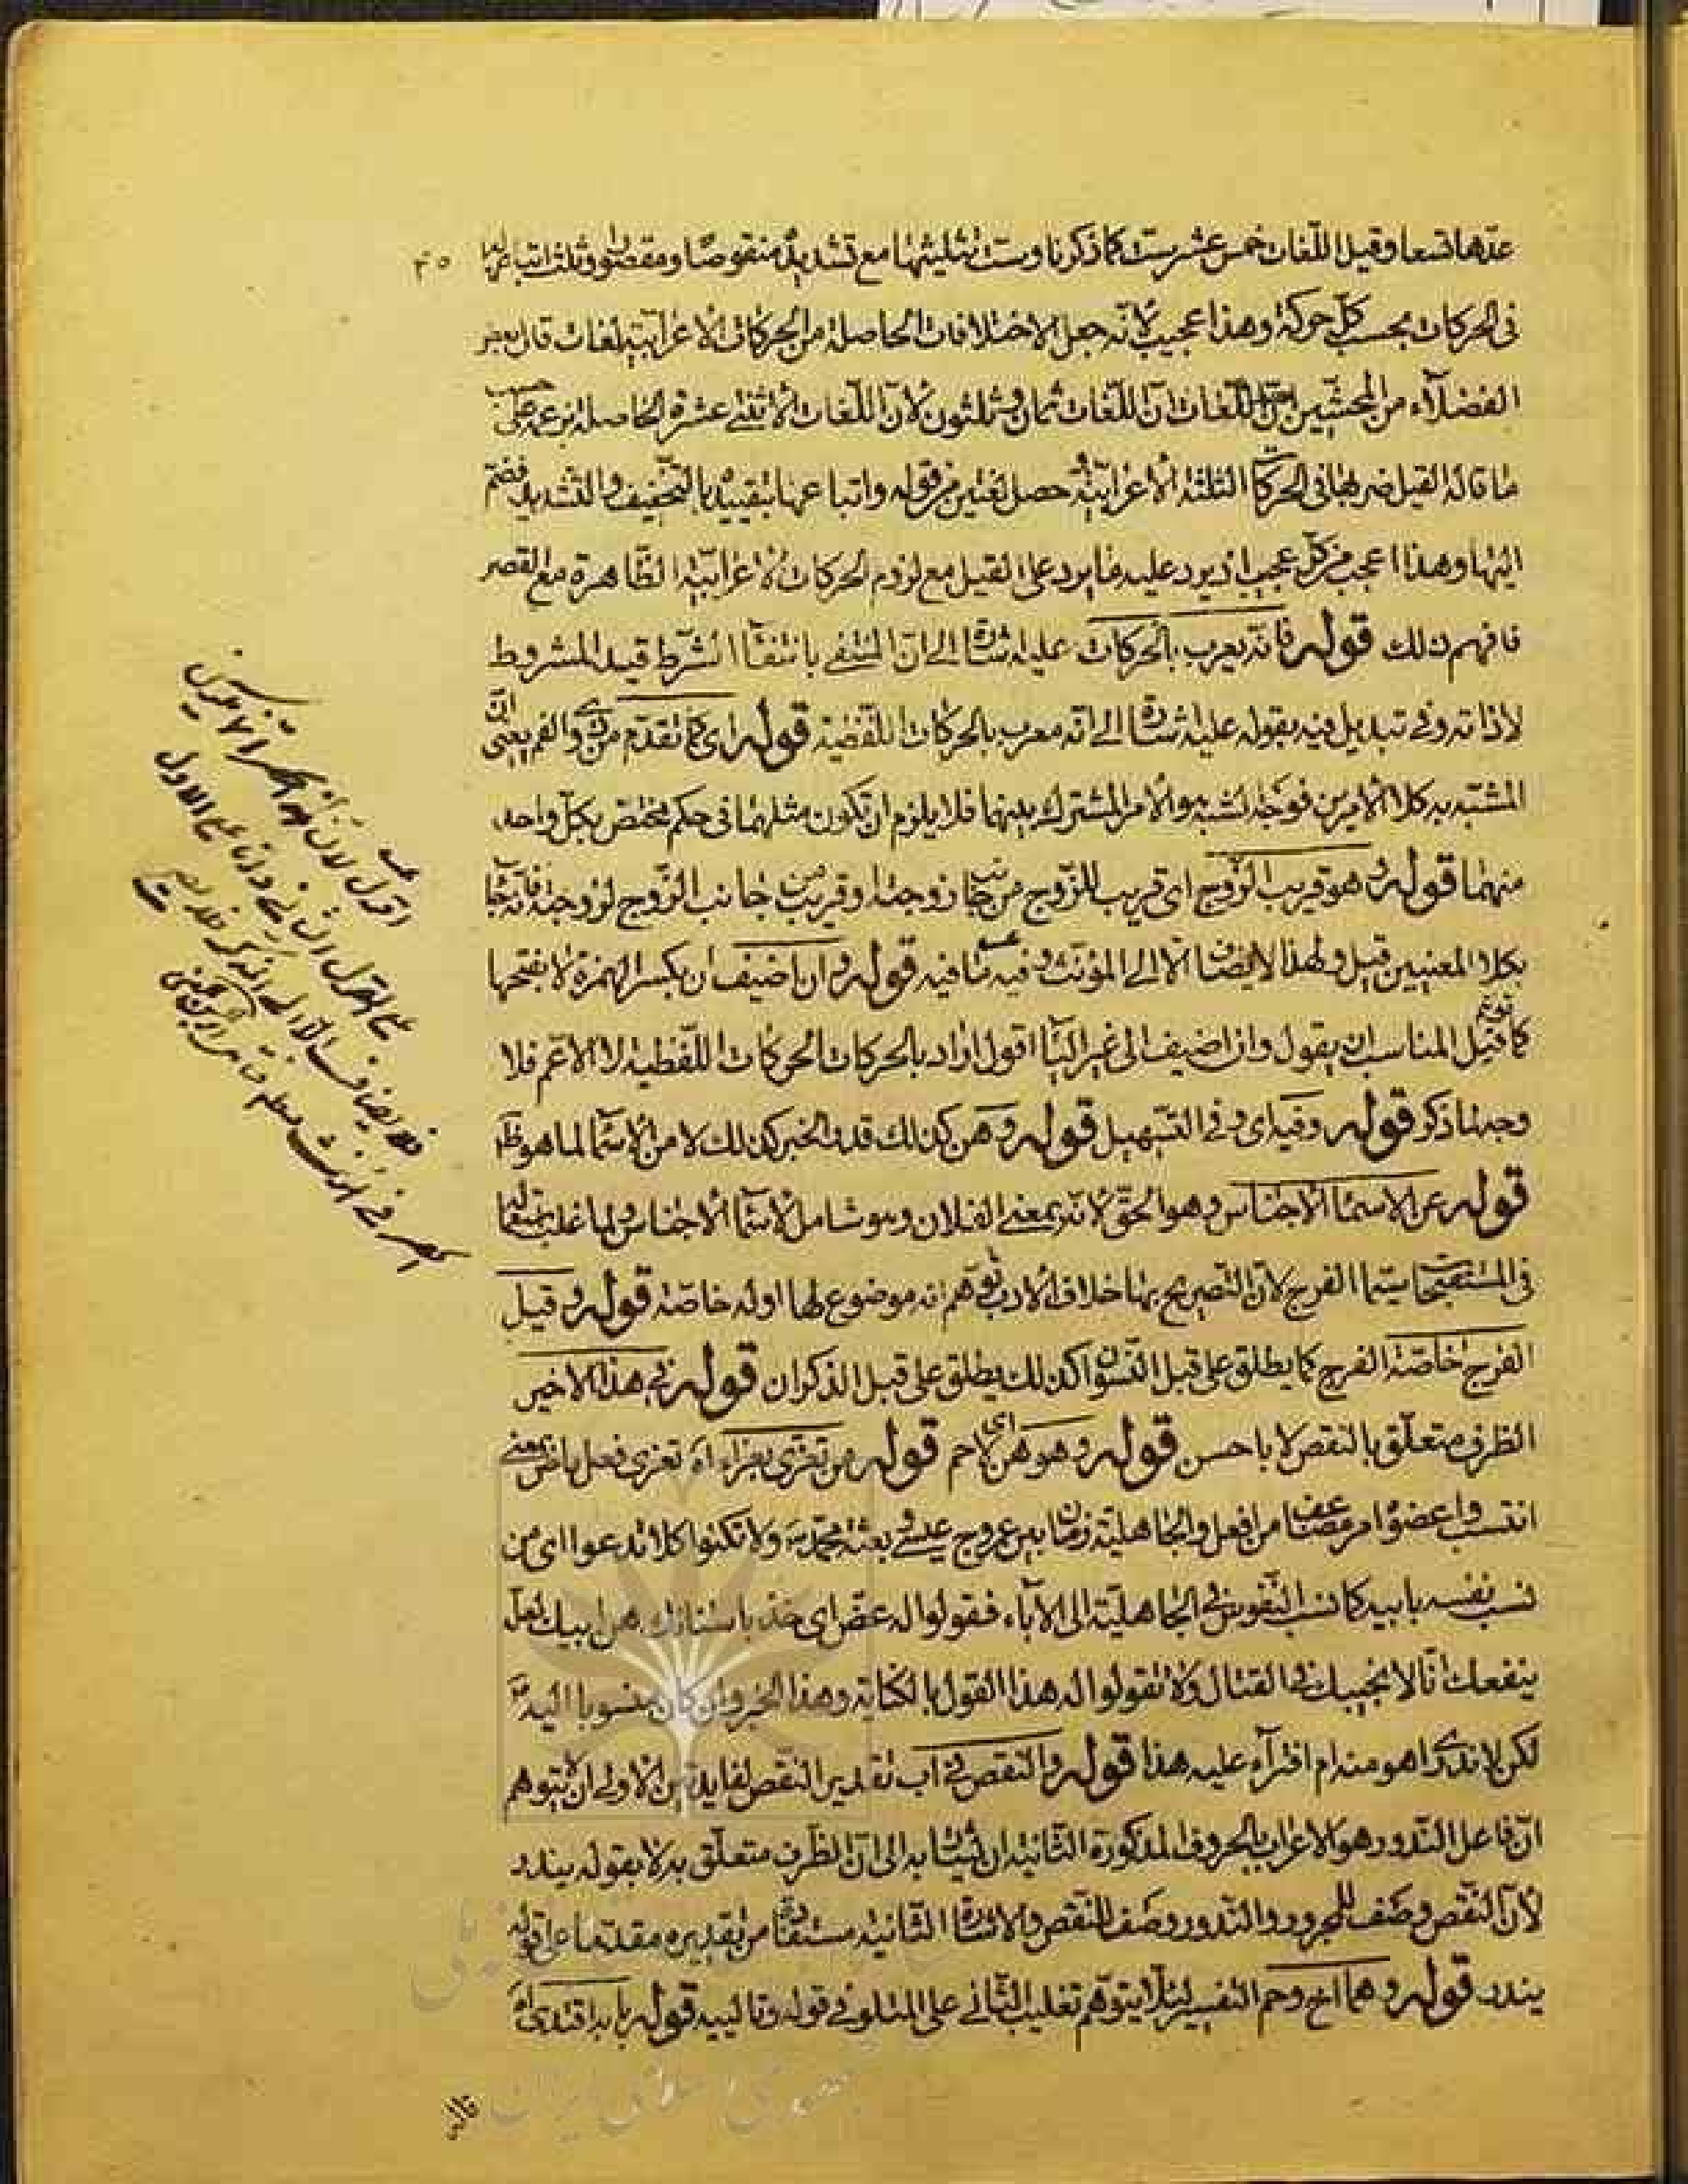 عدّها تسعا وقيل اللّغات خمس عشر ست كما ذكرنا وست بتثليثها مع تشديده منقوصا ومقصورا وثلث اتباعها
فى الحركات بحسب كلّ حركة وهذا عجيب لانّه جعل الاختلافات الحاصلة من الحركات الاعرابيّة لغات قال بعض
الفضلآء من المحشّين اللّغات انّ اللّغات ثمان وثلثون لانّ اللّغات الاثنتى عشرة الحاصلة بزعمه على حسب
ما قاله القيل ضربها فى الحركات الثلثة الاعرابيّة و حصل لغتين من قوله واتباعها بتقييده بالتخفيف والتشديد فضمّ
اليها وهذا اعجب من كلّ عجيب اذ يرد عليه ما يرد على القيل مع لزوم الحركات الاعرابيّة الظّاهرة مع القصر
فافهم ذلك قوله فانّه يعرب بالحركات عليه اشارة الى انّ المنتفى بانتفآء الشّرط قيد المشروط
لا ذاته وفى تبديل فيه بقوله عليه اشارة الى انّه معرب بالحركات اللّفظيّة قوله اى كما تقدّم من ذى والفم يعنى انّ
المشتبه به كلا الامرين فوجه الشبه هو الامر المشترك بينهما فلا يلزم ان تكون مثلهما فى حكم مختص بكلّ واحد
منهما قوله وهو قريب الزّوج اى قريب للزّوج من جانب زوجته او قريب من جانب الزّوج لزوجته فانّه جآء
بكلا المعنيين قيل ولهذا لا يضاف الّا الى المؤنّث وفيه ما فيه قوله وان اضيف ان بكسر الهمزة لا بفتحها
كما توهّم قيل المناسب ان يقول وان اضيف الى غير اليآء اقول اراد بالحركات الحركات اللّفظيّة لا الاعمّ فلا
وجه لما ذكر قوله وفيه اى وفى التسهيل قوله وهن كذلك قدّر الخبر كذلك لا من الاسمآء لما هو ظ
قوله عن الاسمآء الاجناس وهو الحقّ لانّه بمعنى الفلان وهو شامل الاسمآء الاجناس ولما غلب استعمالها
فى المستقبحات سيّما الفرج لانّ التصريح بها خلاف الادب توهّم انّه موضوع لها او له خاصّة قوله وقيل
الفرج خاصّة الفرج كما يطلق على قبل النّسوان كذلك يطلق على قبل الذكران قوله فى هذا الاخير
الظرف متعلّق بالنقص لا باحسن قوله وهو هن اى لاحم قوله من تعزّى بعزاء اه تعزى فعل ماض بمعنى
انتسب واعضوا امر مضاعف من افعل والجاهليّة زمان بين عروج عيسى وبعثة محمّد ص ولا تكنوا كلا تدعوا اى من
نسب نفسه بابيه كما نسب النّفوس فى الجاهليّة الى الآباء فقولوا له عضّ اى خذ باسنانك هن ابيك لعلّ
ينفعك انّا لا نجيبك فى القتال ولا تقولوا له هذا القول بالكناية وهذا الخبر وان كان منسوبا اليه ص
لكن لا ندرى اهو منه ام افترآء عليه هذا قوله والنقص فى اب تقدير النقص لفايدتين الاولى ان لا يتوهم
انّ فاعل النّدور هو الاعراب بالحروف المذكورة الثانية ان يشار به الى انّ الظّرف متعلّق به لا بقوله يندر
لانّ النّقص وصف للمجرور والنّدور وصف للنّقص والاشارة الثانية مستفادة من تقديره مقدّما على قوله
يندر قوله وهما اخ وحم التفسير لئلّا يتوهّم تغليب الثّانى على المتلو فى قوله وتالييه قوله بابه اقتدى اه
قاله